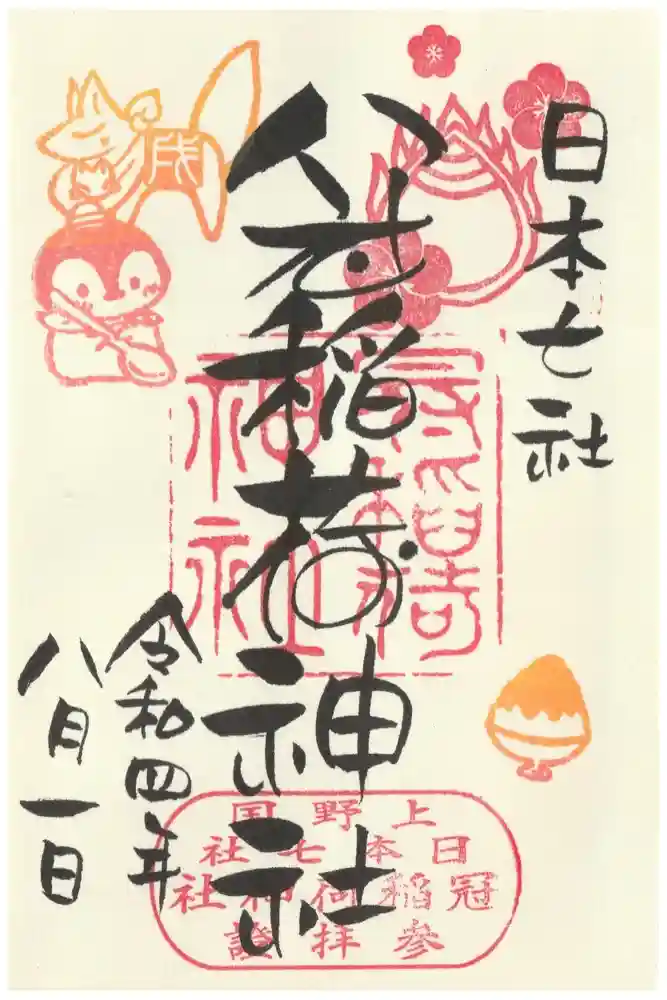 日本七社
冠稲荷神社
令和四年
八月一日
戌
冠稲荷
神社
上野国
日本七社
冠稲荷神社
參拝證